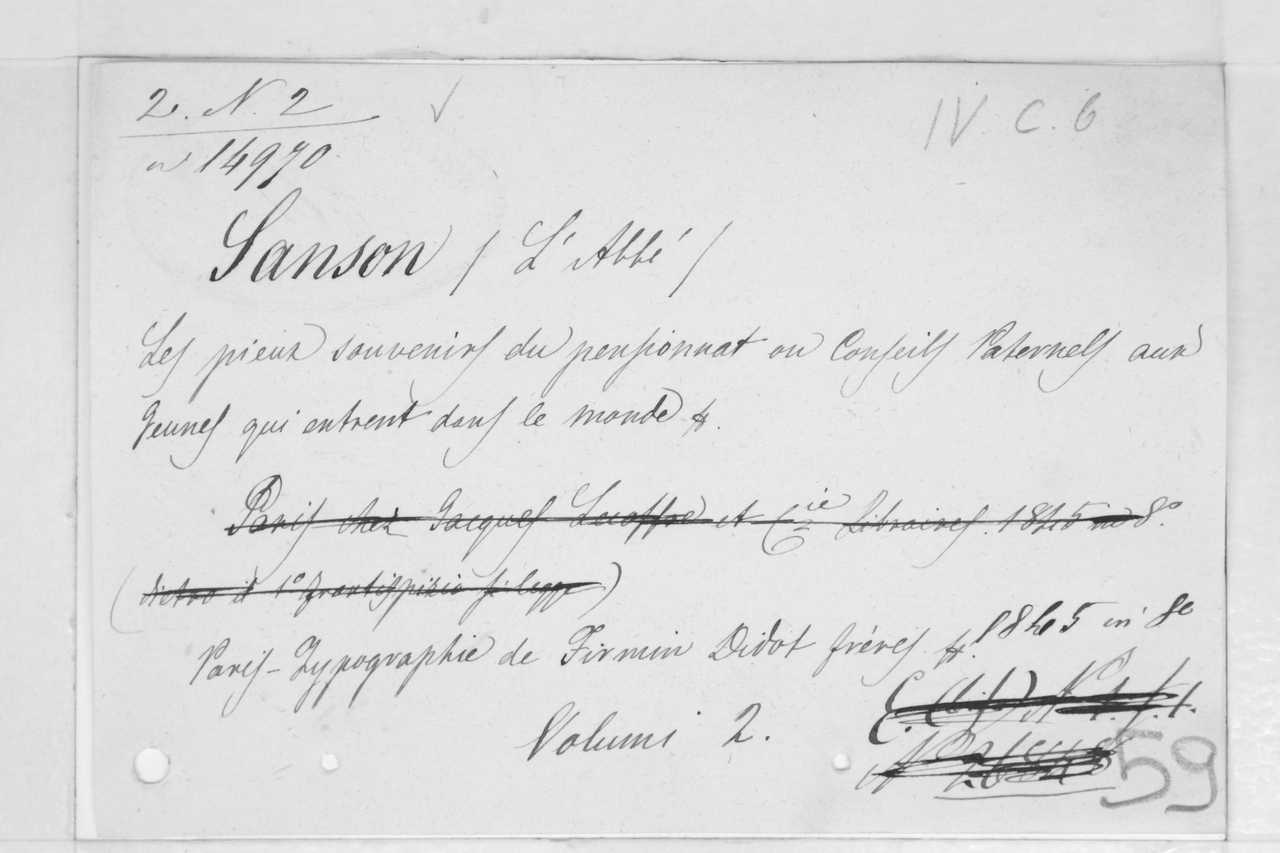 2. N. 2 IV. C. 6
n 14970
Sanson / L'Abbé /
Les pieux souvenirs du pensionnat ou Conseils Paternels aux
Jeunes qui entrent dans le monde &.
Paris chez Jacques Lecoffre et Cie Libraires. 1845 in 8º.
(dietro il 1º frontispizio si legge)
Paris - Typographie de Firmin Didot frères &. 1845 in 8º
Volumi 2.
59